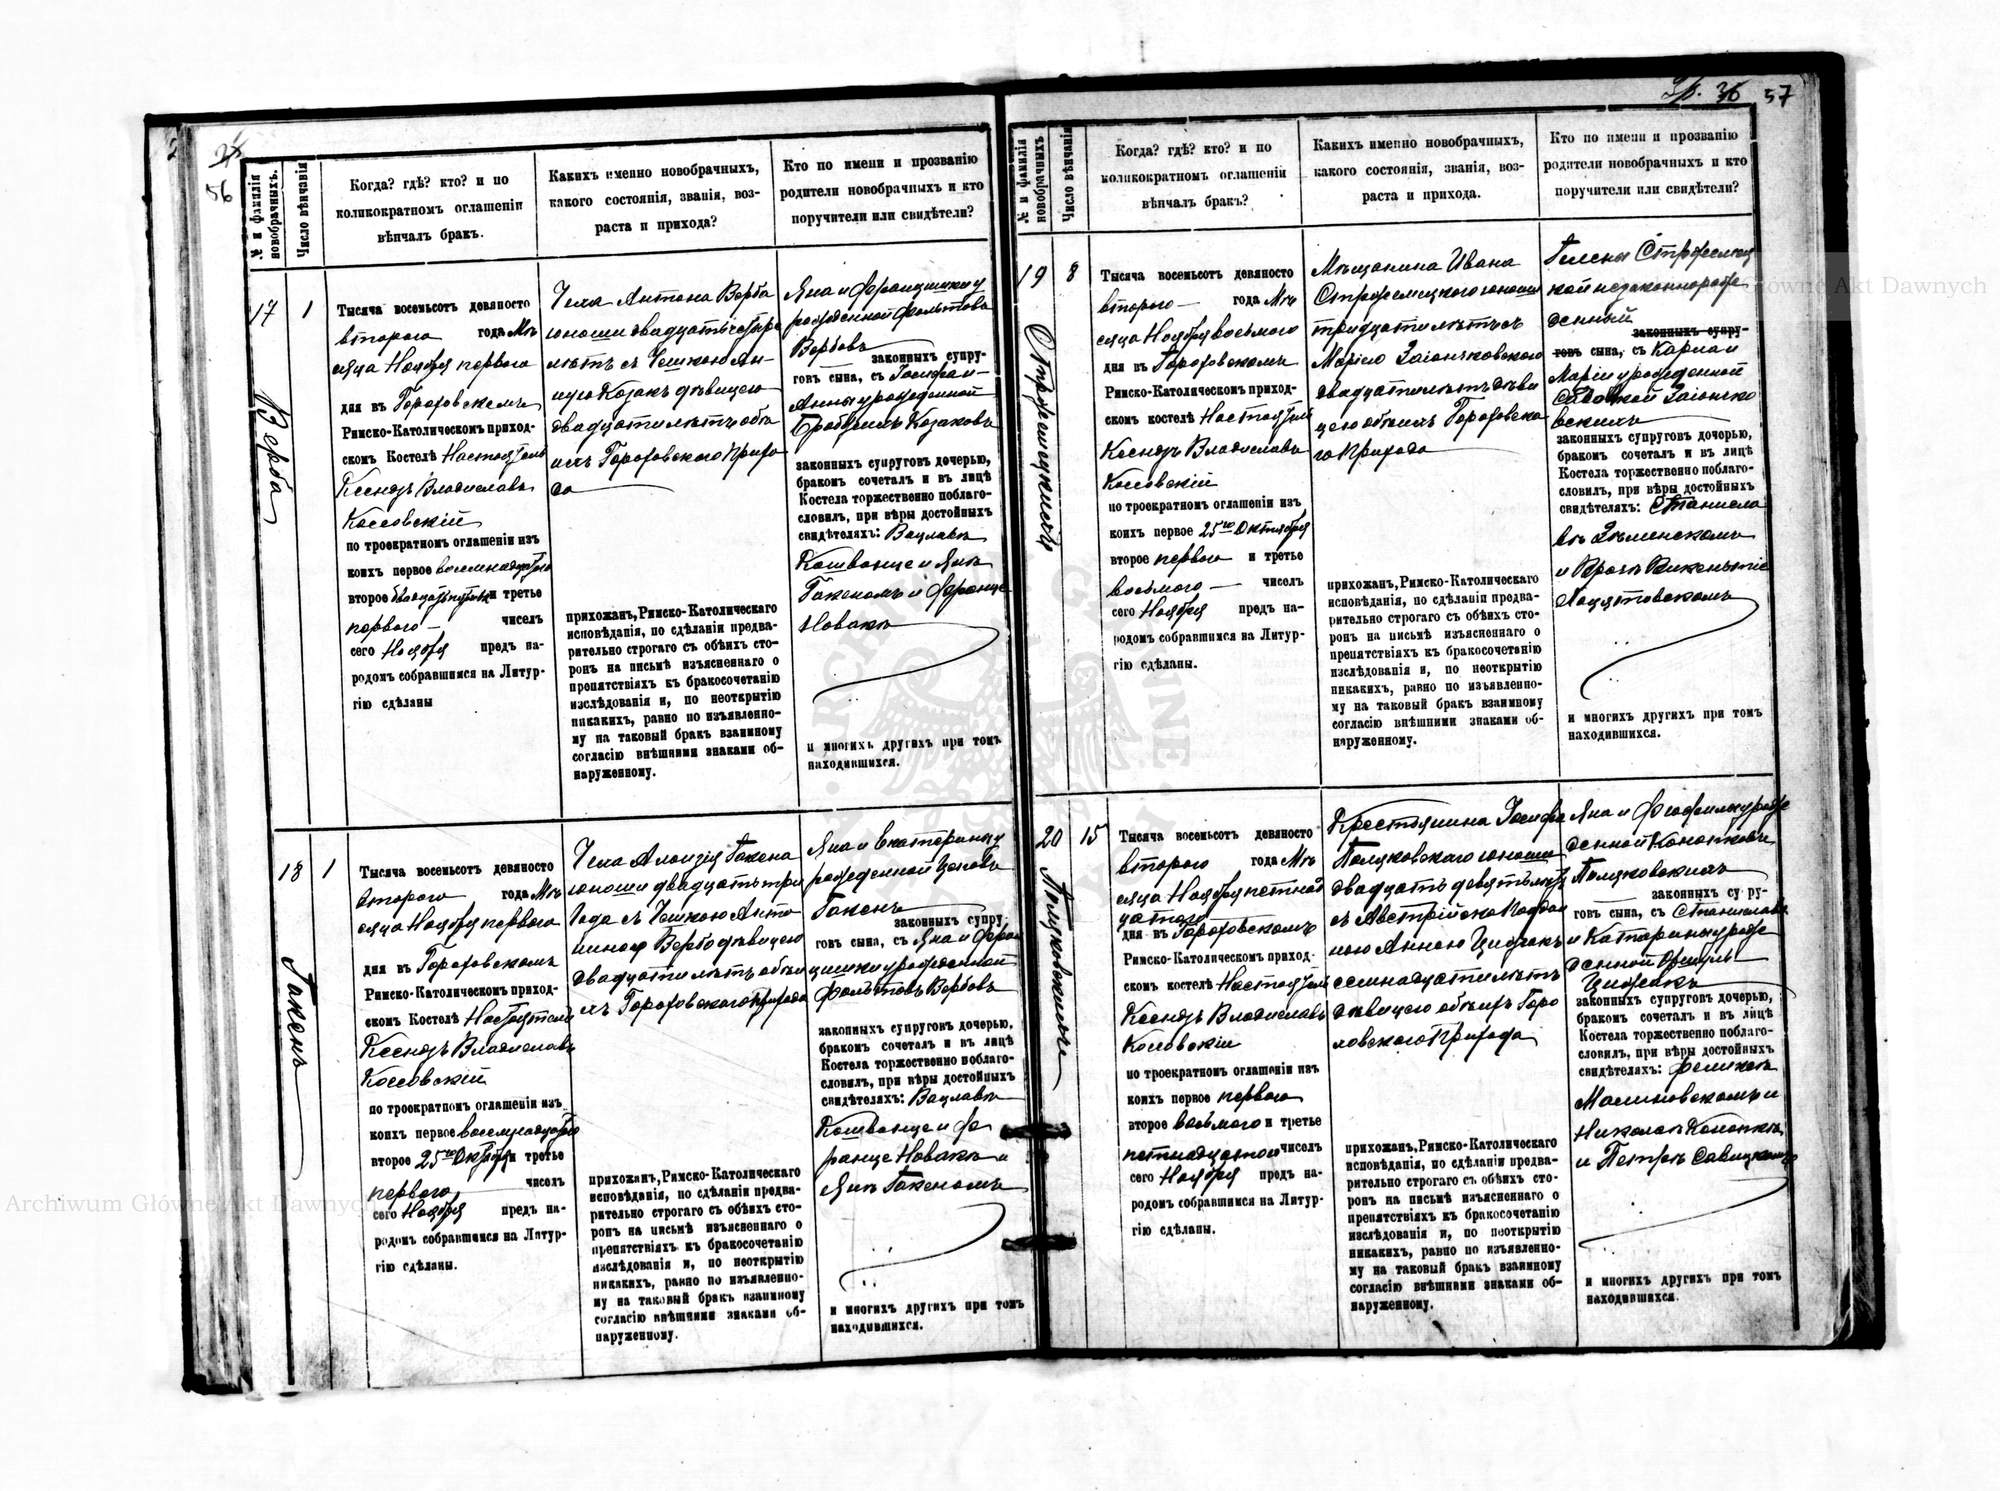 56
№ и фамилія новобрачныхъ.
Число вѣнчанія
Когда? гдѣ? кто? и по
коликократномъ оглашеніи
вѣнчалъ бракъ.
Какихъ именно новобрачныхъ,
какого состоянія, званія, воз-
раста и прихода?
Кто по имени и прозванію
родители новобрачныхъ и кто
поручители или свидѣтели?
17
1
Верба
Тысяча восемьсотъ девяносто
второго года Мѣ
сяца Ноября первого
дня въ Гороховскомъ
Римско-Католическомъ приход-
скомъ Костелѣ Настоятель
Ксендзъ Владиславъ
Коссовскій
по троекратномъ оглашеніи изъ
коихъ первое восемнадцатого
второе и третье
первого чиселъ
сего Ноября предъ на-
родомъ собравшимся на Литур-
гію сдѣланы
Чеха Антона Верба
юношу двадцати четыре
лѣтъ съ Чешкою Ан-
ною Козакъ дѣвицею
двадцати лѣтъ обо
ихъ Гороховского Прихо
да
прихожан, Римско-Католическаго
исповѣданія, по сдѣланіи предва-
рительно строгаго съ обѣихъ сто-
ронъ на письмѣ изъясненнаго о
препятствіяхъ къ бракосочетанію
изслѣдованія и, по неоткрытію
никакихъ, равно по изъявленно-
му на таковый бракъ взаимному
согласію внѣшними знаками об-
наруженному.
Яна и Францишки у
рожденной Фольтова
Вербовъ
законныхъ супру-
говъ сына, съ Іосифа и
Анны урожденной
Козаковъ
законныхъ супруговъ дочерью,
бракомъ сочеталъ и въ лицѣ
Костела торжественно поблаго-
словилъ, при вѣры достойныхъ
свидѣтеляхъ: Вацлавѣ
Кошванце и Янѣ
Гакеномъ и Франце
Новакѣ
и многихъ другихъ при томъ
находившихся.
18
1
Гакенъ
Тысяча восемьсотъ девяносто
второго года Мѣ
сяца Ноября первого
дня въ Гороховскомъ
Римско-Католическомъ приход-
скомъ Костелѣ Настоятель
Ксендзъ Владиславъ
Коссовскій
по троекратномъ оглашеніи изъ
коихъ первое восемнадцатого
второе 25го Октября и третье
первого чиселъ
сего Ноября предъ на-
родомъ собравшимся на Литур-
гію сдѣланы.
Чеха Алоизія Гакена
юношу двадцать три
года съ Чешкою Анто
ниною Верба дѣвицею
двадцати лѣтъ обои
хъ Гороховского Прихода
прихожан, Римско-Католическаго
исповѣданія, по сдѣланіи предва-
рительно строгаго съ обѣихъ сто-
ронъ на письмѣ изъясненнаго о
препятствіяхъ къ бракосочетанію
изслѣдованія и, по неоткрытію
никакихъ, равно по изъявленно-
му на таковый бракъ взаимному
согласію внѣшними знаками об-
наруженному.
Яна и Екатерины у
рожденной
Гакенъ
законныхъ супру-
говъ сына, съ Яна и Фран
цишки урожденной
Фольтовъ Вербовъ
законныхъ супруговъ дочерью,
бракомъ сочеталъ и въ лицѣ
Костела торжественно поблаго-
словилъ, при вѣры достойныхъ
свидѣтеляхъ: Вацлавѣ
Кошванце и Фр
ранце Новакѣ и
Янѣ Гакеномъ
и многихъ другихъ при томъ
находившихся.
36 57
№ и фамилія новобрачныхъ
Число вѣнчанія
Когда? гдѣ? кто? и по
коликократномъ оглашеніи
вѣнчалъ бракъ?
Какихъ именно новобрачныхъ,
какого состоянія, званія, воз-
раста и прихода.
Кто по имени и прозванію
родители новобрачныхъ и кто
поручители или свидѣтели?
19
8
Тысяча восемьсотъ девяносто
второго года Мѣ
сяца Ноября восьмого
дня въ Гороховскомъ
Римско-Католическомъ приход-
скомъ костелѣ Настоятель
Ксендзъ Владиславъ
Коссовскій
по троекратномъ оглашеніи изъ
коихъ первое 25го Октября
второе первого и третье
восьмого чиселъ
сего Ноября предъ на-
родомъ собравшимся на Литур-
гію сдѣланы.
Мѣщанина Ивана
юношу
тридцати лѣтъ съ
Маріею Заіончковского
двадцати лѣтъ дѣви
цею обоихъ Гороховско
го Прихода
прихожан, Римско-Католическаго
исповѣданія, по сдѣланіи предва-
рительно строгаго съ обѣихъ сто-
ронъ на письмѣ изъясненнаго о
препятствіяхъ къ бракосочетанію
изслѣдованія и, по неоткрытію
никакихъ, равно по изъявленно-
му на таковый бракъ взаимному
согласію внѣшними знаками об-
наруженному.
кой незаконнорож
денный
законныхъ супру-
говъ сына, съ Карла и
Маріи урожденной
Заіончко
вскихъ
законныхъ супруговъ дочерью,
бракомъ сочеталъ и въ лицѣ
Костела торжественно поблаго-
словилъ, при вѣры достойныхъ
свидѣтеляхъ: Станисла
вѣ Зѣлинскомъ
и Викентіе
и многихъ другихъ при томъ
находившихся.
20
15
Тысяча восемьсотъ девяносто
второго года Мѣ
сяца Ноября пятнад
цатого
дня въ Гороховскомъ
Римско-Католическомъ приход-
скомъ костелѣ Настоятель
Ксендзъ Владиславъ
Коссовскій
по троекратномъ оглашеніи изъ
коихъ первое первого
второе восьмого и третье
пятнадцатого чиселъ
сего Ноября предъ на-
родомъ собравшимся на Литур-
гію сдѣланы.
Крестьянина Іосифа
юношу
двадцать девять лѣтъ
съ Австрійско Поддан
ною Анною
семнадцати лѣтъ
дѣвицею обоихъ Горо
ховского Прихода
прихожан, Римско-Католическаго
исповѣданія, по сдѣланіи предва-
рительно строгаго съ обѣихъ сто-
ронъ на письмѣ изъясненнаго о
препятствіяхъ къ бракосочетанію
изслѣдованія и, по неоткрытію
никакихъ, равно по изъявленно-
му на таковый бракъ взаимному
согласію внѣшними знаками об-
наруженному.
Яна и Феофили урож
денной
законныхъ супру-
говъ сына, съ Станислава
и Катарины урож
денной
законныхъ супруговъ дочерью,
бракомъ сочеталъ и въ лицѣ
Костела торжественно поблаго-
словилъ, при вѣры достойныхъ
свидѣтеляхъ: Феликсѣ
Малиновскомъ и
Николаѣ
и Петрѣ Савицкомъ
и многихъ другихъ при томъ
находившихся.
Archiwum Główne Akt Dawnych
Główne Akt Dawnych